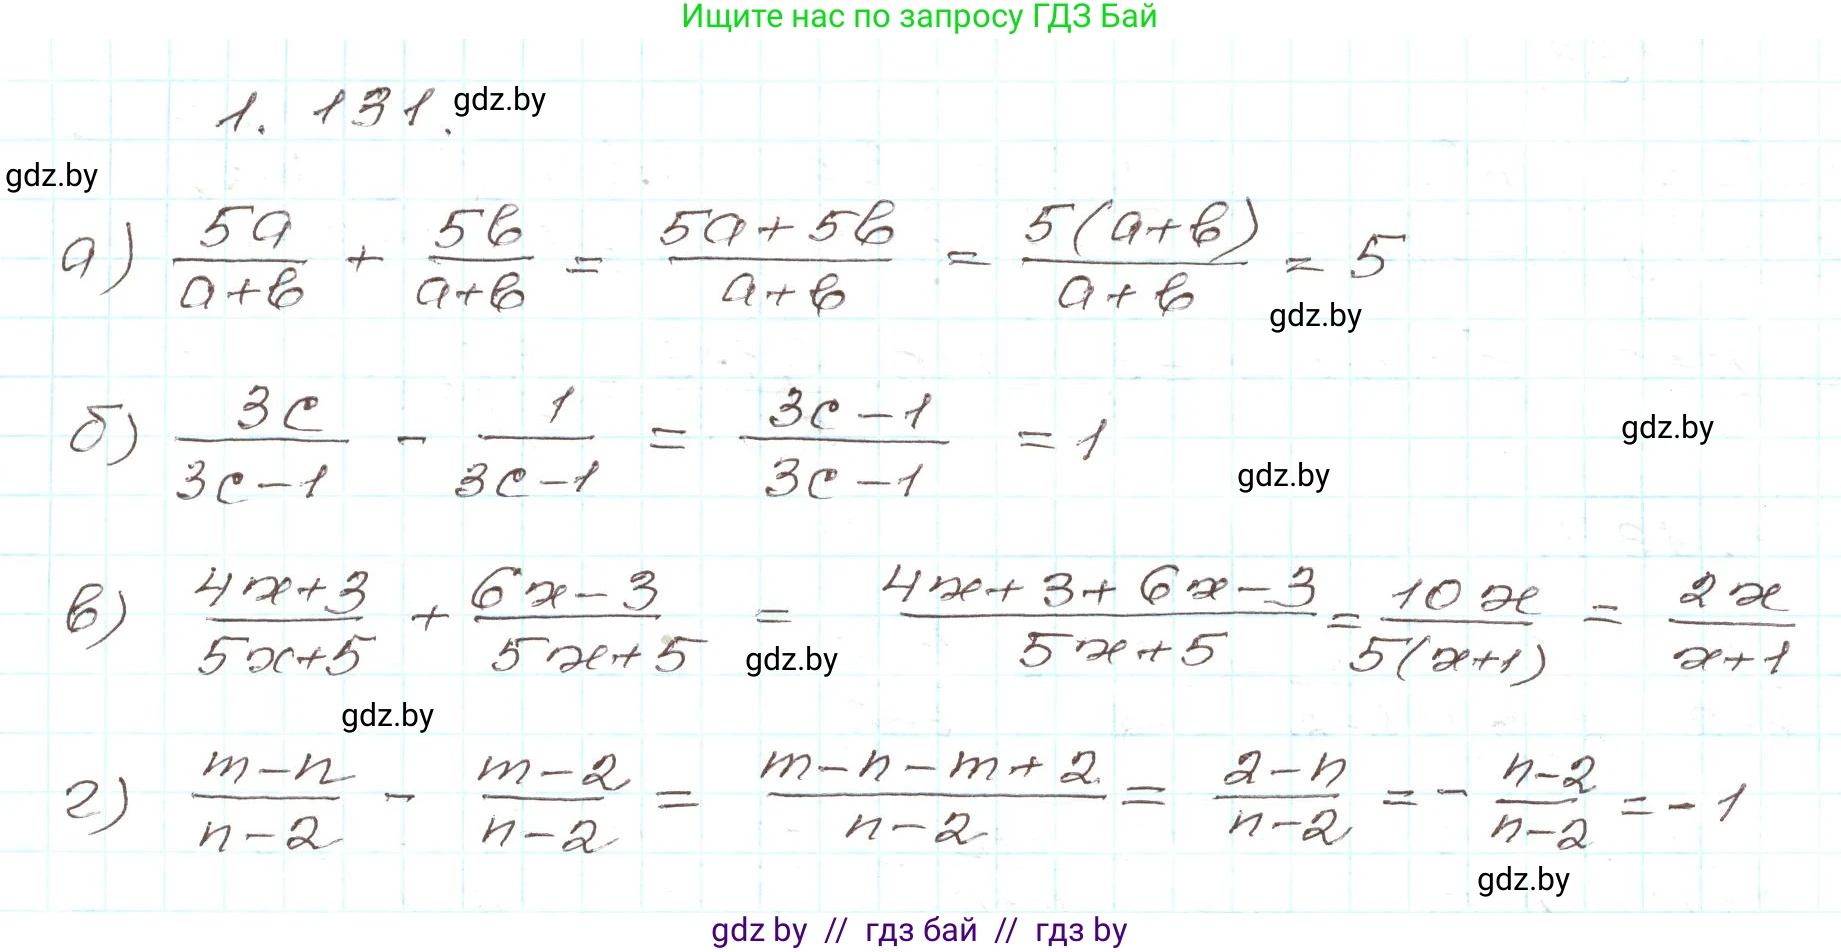 Ищите нас по запросу ГДЗ Бай
1. 131. gdz.by
gdz.by
а) 5a/(a+b) + 5b/(a+b) = (5a+5b)/(a+b) = 5(a+b)/(a+b) = 5
gdz.by
б) 3c/(3c-1) - 1/(3c-1) = (3c-1)/(3c-1) = 1
gdz.by
gdz.by
в) (4x+3)/(5x+5) + (6x-3)/(5x+5) = (4x+3+6x-3)/(5x+5) = 10x/(5(x+1)) = 2x/(x+1)
gdz.by
gdz.by
г) (m-n)/(n-2) - (m-2)/(n-2) = (m-n-m+2)/(n-2) = (2-n)/(n-2) = - (n-2)/(n-2) = -1
gdz.by
gdz by // гдз бай // гдз by